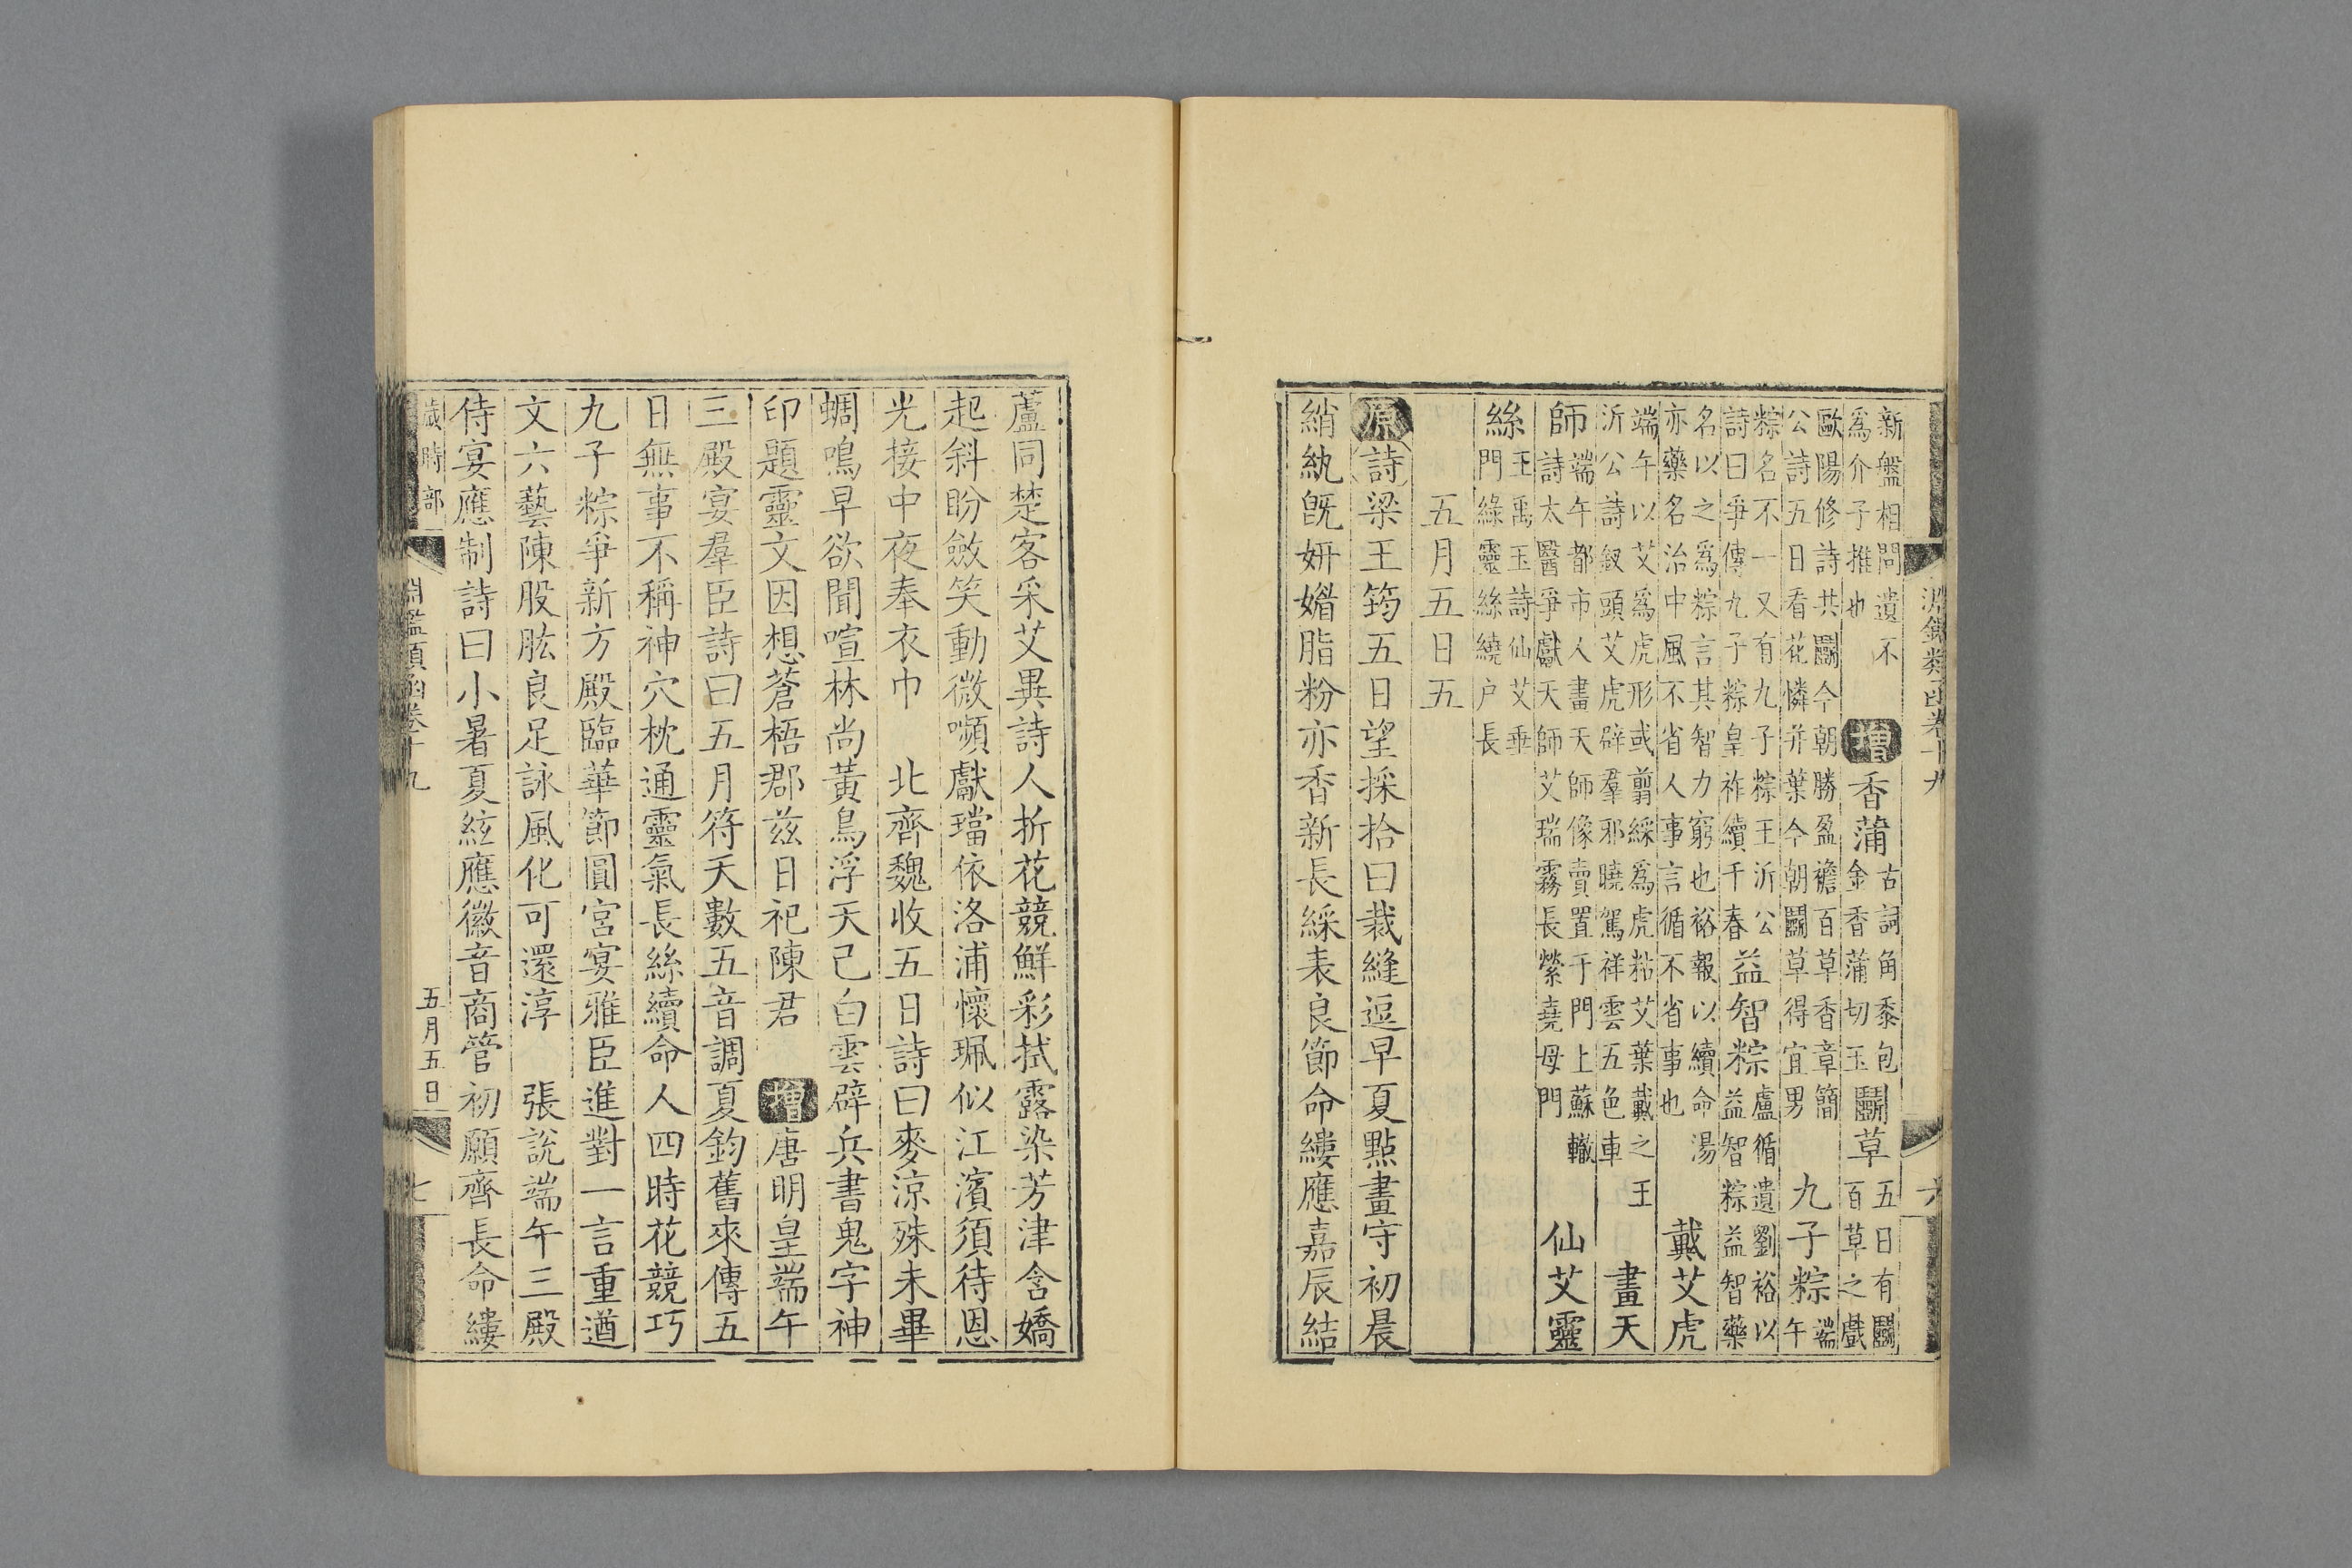 淵鑑類函卷十九 六
新盤相問遺不
爲介子推也
增香蒲
古詞角黍包
金香蒲切玉
鬭草
五日有鬭
百草之戲
歐陽修詩共鬭今朝勝盈襜百草香章簡
公詩五日看花憐并葉今朝鬭草得宜男
九子粽
端
午
粽名不一又有九子粽王沂公
詩曰爭傳九子粽皇祚續千春
益智粽
盧循遺劉裕以
益智粽益智藥
名以之爲粽言其智力窮也裕報以續命湯
亦藥名治中風不省人事言循不省事也
戴艾虎
端午以艾爲虎形或翦綵爲虎粘艾葉戴之王
沂公詩釵頭艾虎辟羣邪曉駕祥雲五色車
畫天
師
端午都市人畫天師像賣置于門上蘇轍
詩太醫爭獻天師艾瑞霧長縈堯母門
仙艾靈
絲
王禹玉詩仙艾垂
門綠靈絲繞户長
五月五日五
原詩梁王筠五日望採拾曰裁縫逗早夏點畫守初晨
綃紈旣妍媚脂粉亦香新長綵表良節命縷應嘉辰結
蘆同楚客采艾異詩人折花競鮮彩拭露染芳津含嬌
起斜盼斂笑動微嚬獻璫依洛浦懷珮似江濱須待恩
光接中夜奉衣巾 北齊魏收五日詩曰麥涼殊未畢
蜩鳴早欲聞喧林尚黃鳥浮天已白雲辟兵書鬼字神
印題靈文因想蒼梧郡兹日祀陳君 增唐明皇端午
三殿宴羣臣詩曰五月符天數五音調夏鈞舊來傳五
日無事不稱神穴枕通靈氣長絲續命人四時花競巧
九子粽爭新方殿臨華節圓宮宴雅臣進對一言重遒
文六藝陳股肱良足詠風化可還淳 張說端午三殿
侍宴應制詩曰小暑夏絃應徽音商管初願齊長命縷
歲時部 淵鑑類函卷十九 五月五日 七